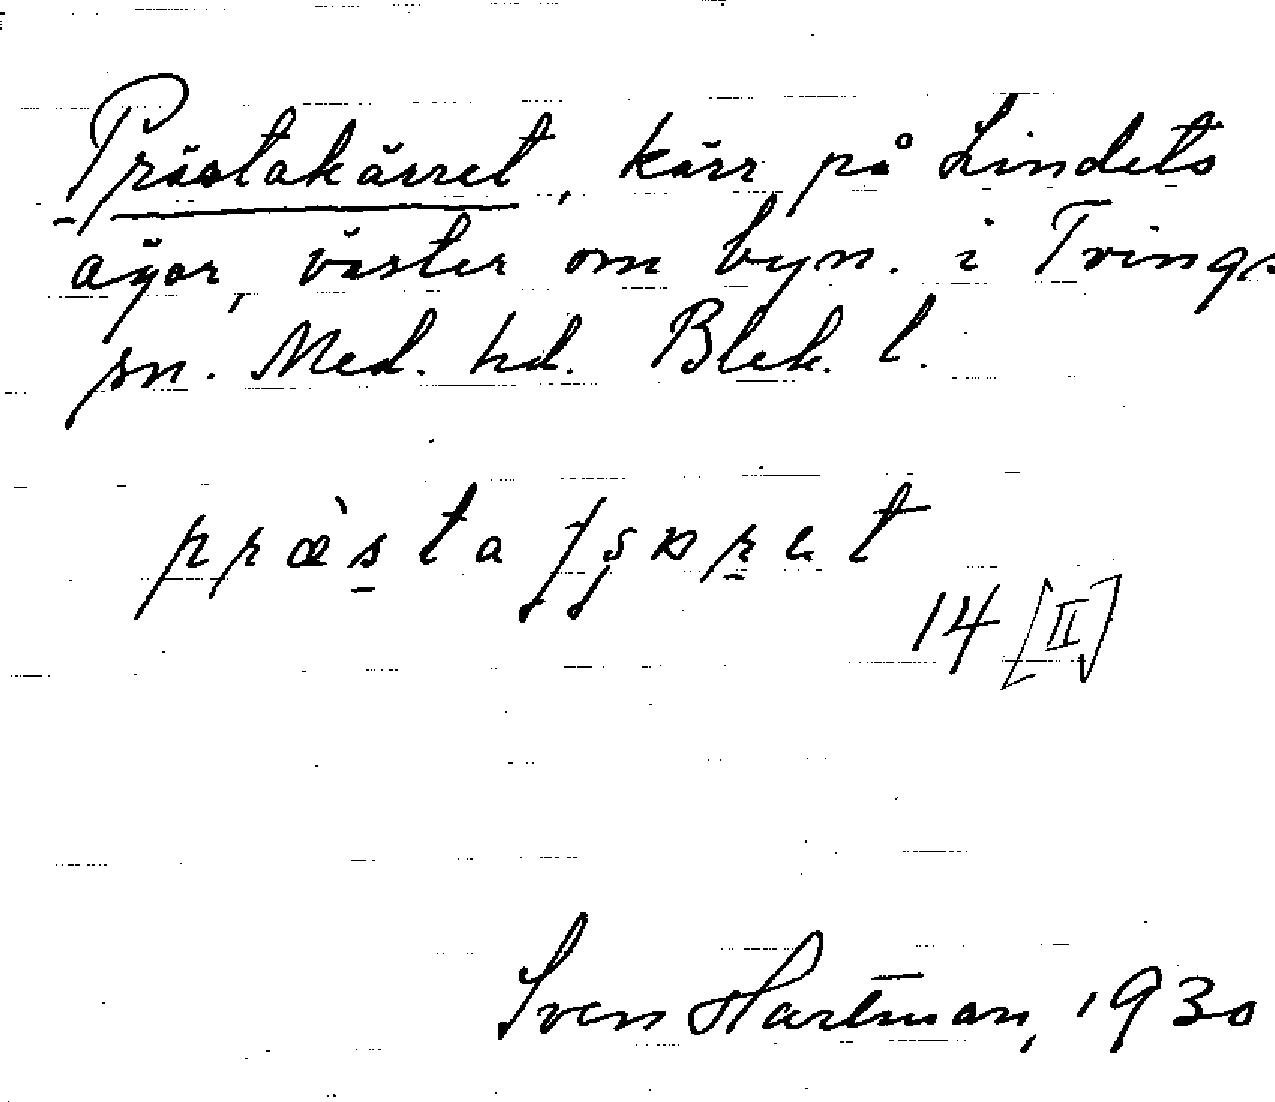 Prästakärret, kärr på Lindets
ägor, väster om byn. i Tvings
sn. Med. hd. Blek. l.
14 [II]
Sven Hartman, 1930